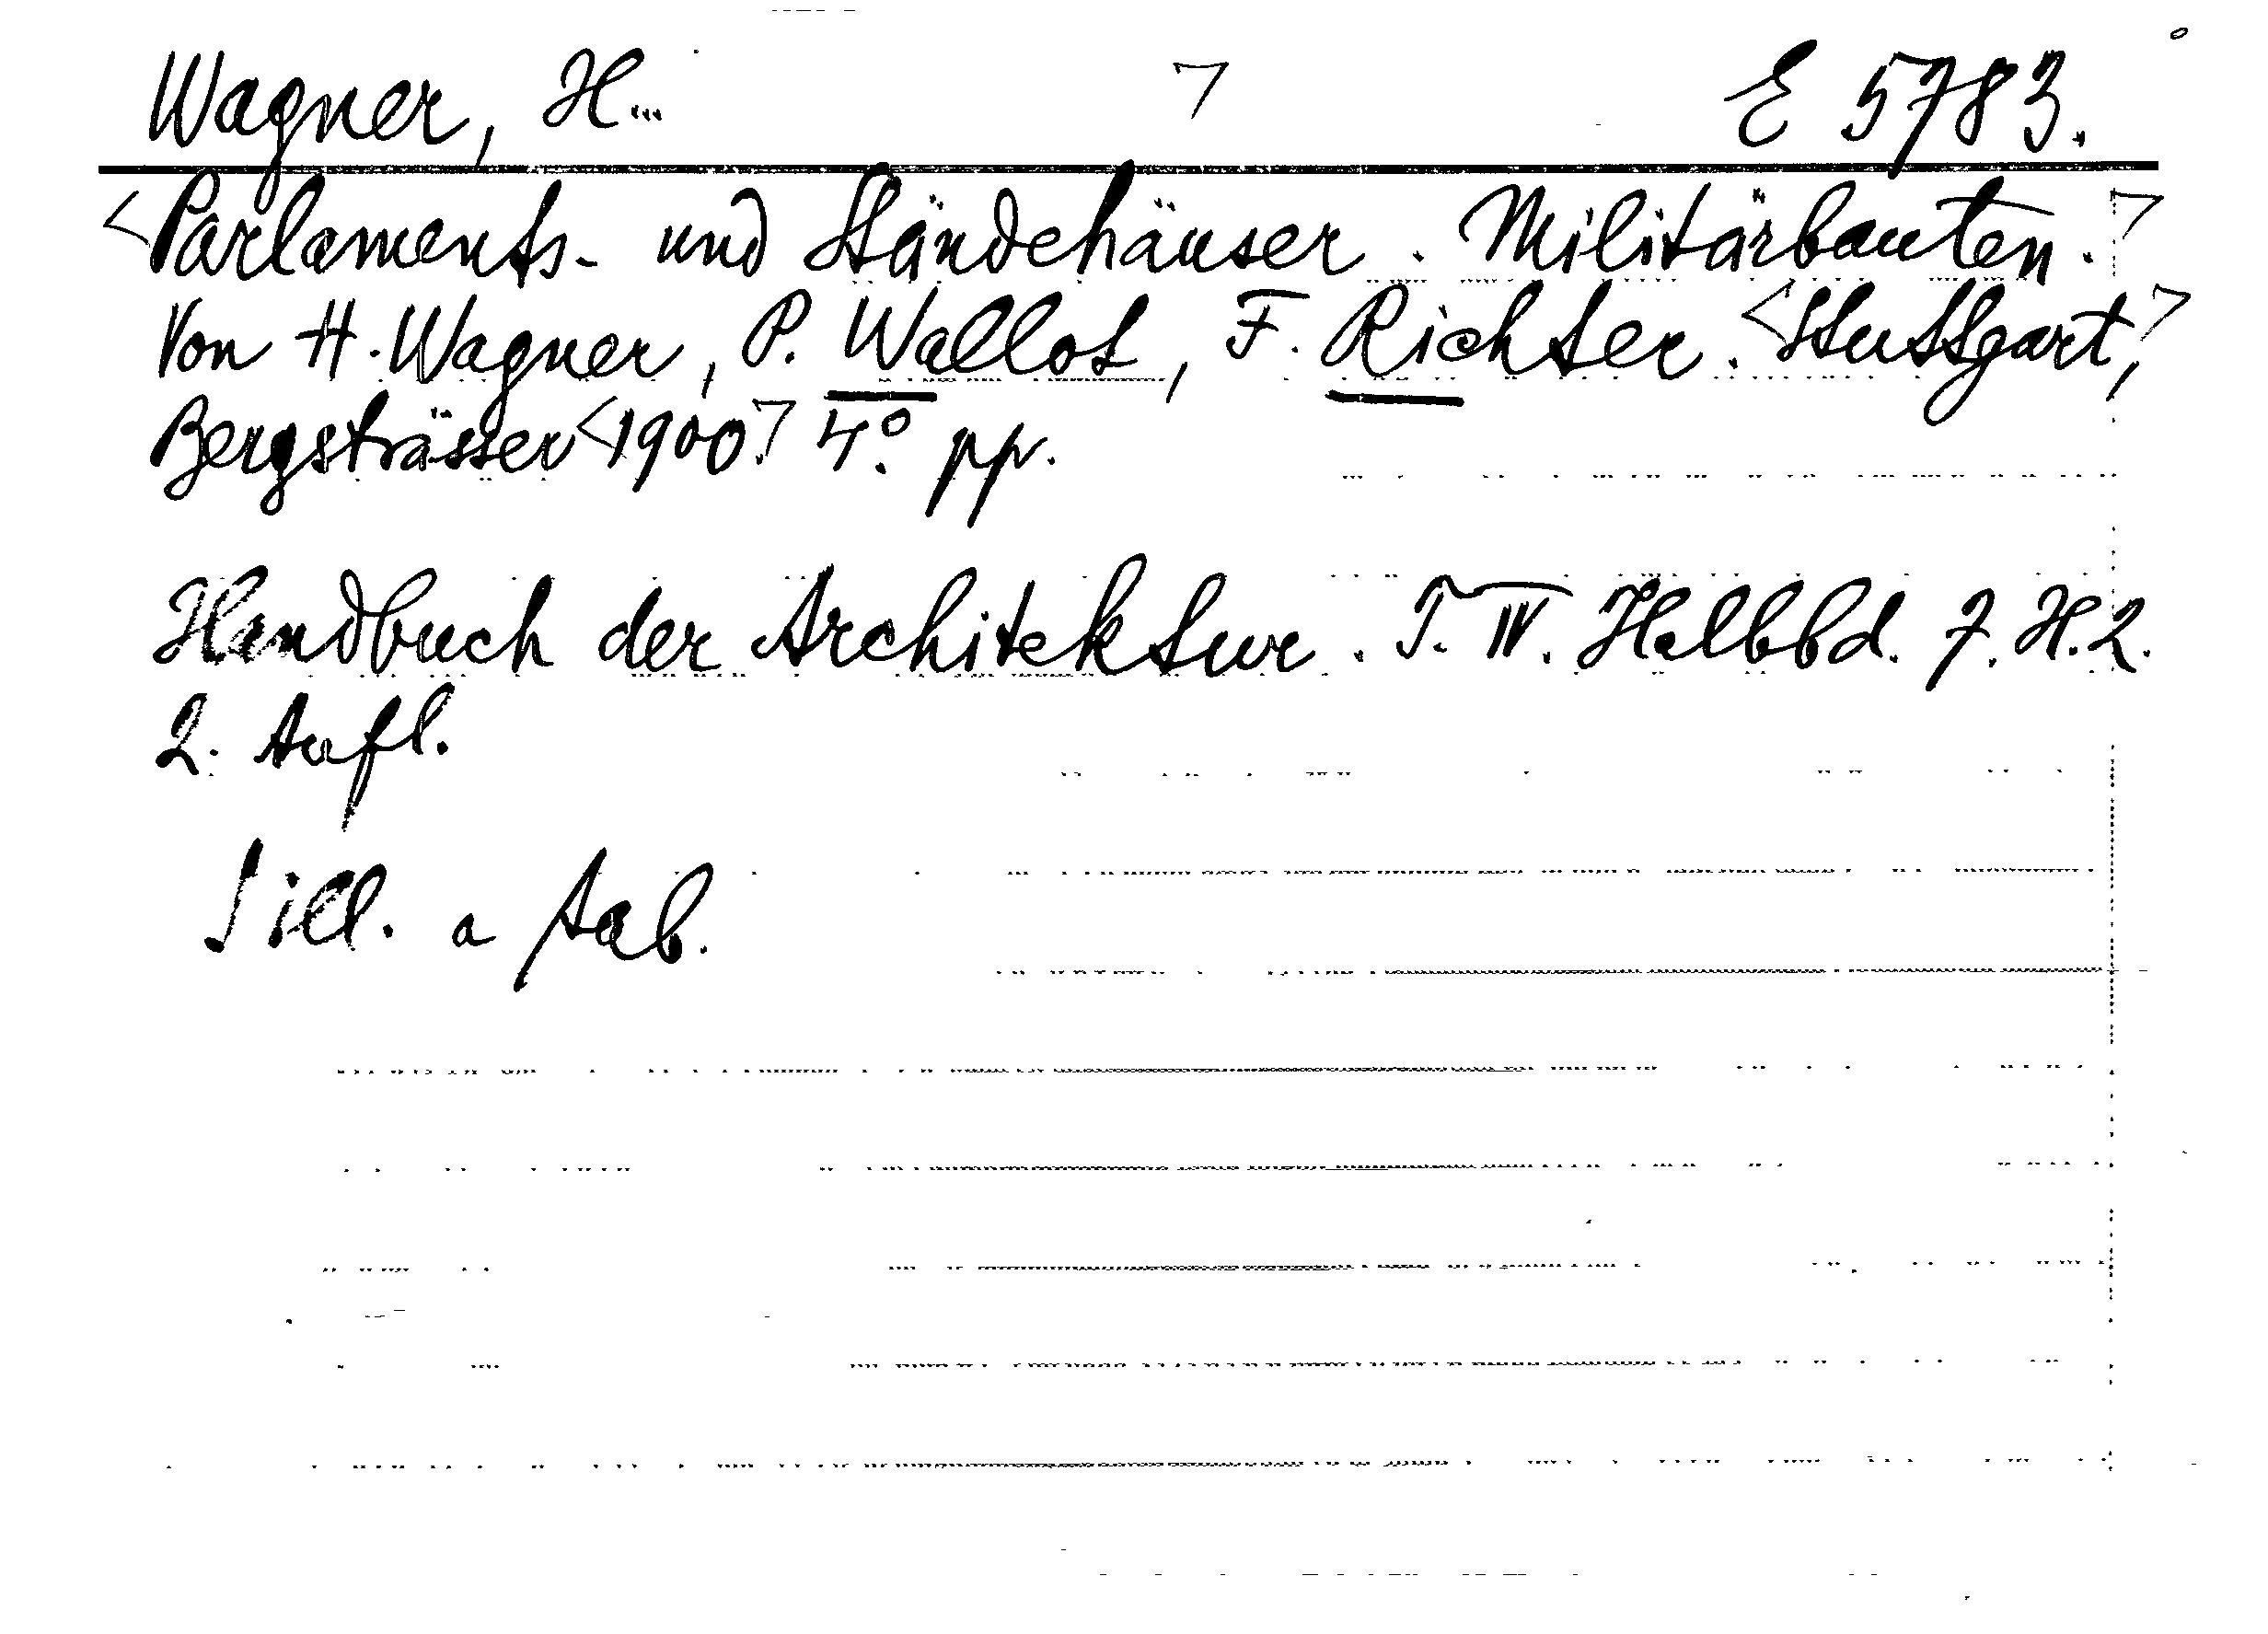 Wagner, H... E 5783.
Parlaments- und Ständehäuser. Militärbauten.
Von H. Wagner, P. Wallot, F. Richter. Stuttgart,
Bergsträsser 1900. 4°. pp.
Handbuch der Architektur. T. IV. Halbbd. 7. H. 2.
2. Aufl.
ill. a tab.